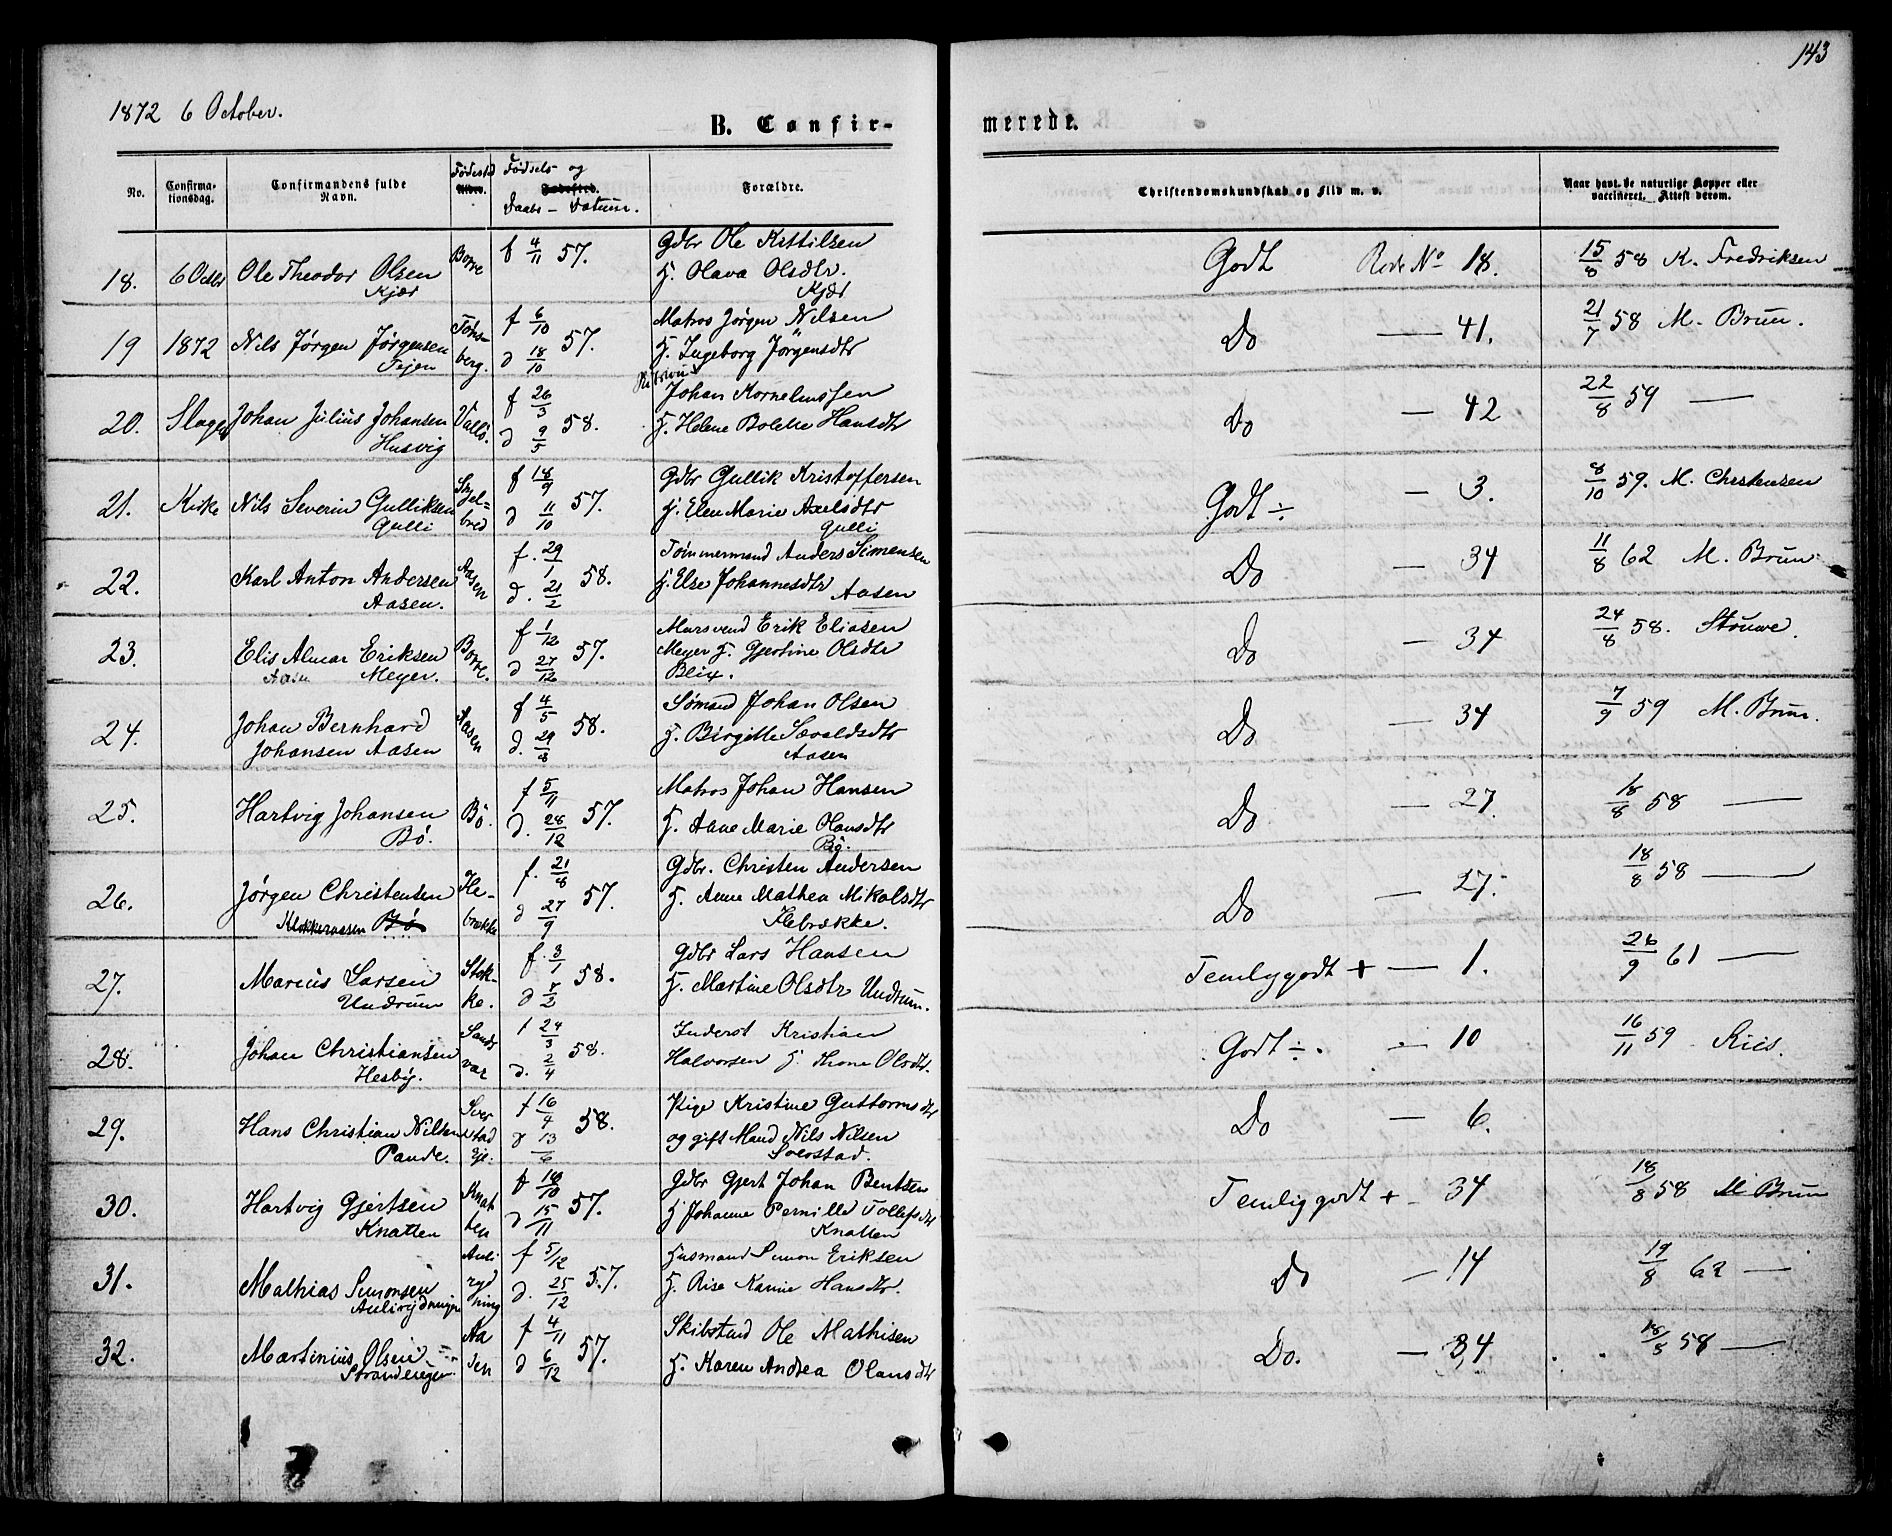 143
1872 6 October.
B. Confir- merede.
No. Confirma- tionsdag. Confirmandens fulde Navn. Fødested Alder. Fødsels- og Fødested. Daabs- Datum. Forældre. Christendomskundskab og Flid m. v. Naar havt de naturlige Kopper eller vaccineret. Attest derom.
Gdbr Ole Kittilsen
18. 6 Octbr Ole Theodor Olsen Borre f 4/11 57. H. Olava Olsdtr. Godt Rode No 18. 15/8 58 K. Fredriksen
Kjær Kjær
f 6/10 Matros Jørgen Nilsen
19 1872 Nils Jørgen Jørgensen Tøns- 57. H. Ingeborg Jørgensdtr Do — 41. 21/7 58 M. Brun.
Tejen berg. d 18/10
f 26/3 Johan Kornelius sen
20. Slagen Johan Julius Johansen Vallö. 58. H. Helene Bolette Hansdtr Do — 42 22/8 59 —
Husvig d 9/5
f 18/9 Gdbr Gullik Kristoffersen
21. Kirke Nils Severin Gulliksen 57. H. Elen Marie Axelsdtr Godt ÷ — 3. 8/10 59. M. Christensen
Gulli bred d 11/10 Gulli
f. 29/1 Tømmermand Anders Simensen
22. Karl Anton Andersen Aasen 58. H. Else Johannesdtr Do — 34 11/8 62 M. Brun
Aasen. d. 21/2 Aasen
f 1/12 Mursvend Erik Eliasen
23. Elis Almar Eriksen Borre. 57. Meyer H. Gjertine Olsdtr Do — 34 24/8 58. Stouwe.
Aasen Meyer. d 27/12 Blix.
f 4/5 Sømand Johan Olsen
24. Johan Bernhard Aasen 58. H. Birgitte Sevaldsdtr Do — 34 7/9 59 M. Brun.
Johansen Aasen d. 29/8 Aasen
f 5/11 Matros Johan Hansen
25. Hartvig Johansen Bö. 57. H. Anne Marie Olausdtr Do — 27. 18/8 58 —
Bö. d. 28/12 Bö.
f. 21/8 Gdbr. Christen Andersen
26. Jørgen Christensen He- 57. H. Anne Mathea Mikalsdtr Do — 27. 18/8 58 —
Klokkeraasen Bö brække d 27/9 Hebrække.
f. 3/1 Gdbr Lars Hansen
27. Marius Larsen Stok- 58. H. Martine Olsdtr Undrum. Temlig godt + — 1. 26/9 61 —
Undrum ke. d 7/2
f 24/3 Inderst Kristian
28. Johan Christiansen Sands 58. Halvorsen H. Thone Olsdtr. Godt ÷. — 10 16/11 59 Ries.
Hesby. vær d. 2/4
f 16/4 Pige Kristine Guttormsdtr
29. Hans Christian Nilsen 58. og gift Mand Nils Nilsen Do — 6.
Pande. stad Eje. d 13/6 Sverstad.
f 18/10 Gdbr Gjert Johan Bentsen
30. Hartvig Gjertsen Knat 57. H Johanne Pernille Tollefsdtr Temlig godt + — 34 18/8 58 M. Brun
Knatten ten d 15/11 Knatten
Auli f 5/12 Husmand Simon Eriksen
31. Mathias Simonsen ryd 57. H. Rise Karine Hansdtr. Do — 14 19/8 62 —
Aulirydningen ning d. 25/12
Aa f 4/11 Skibstmd Ole Mathisen
32. Martinius Olsen sen 57. H. Karen Andrea Olausdtr Do. — 34 18/5 58 —
d 6/12